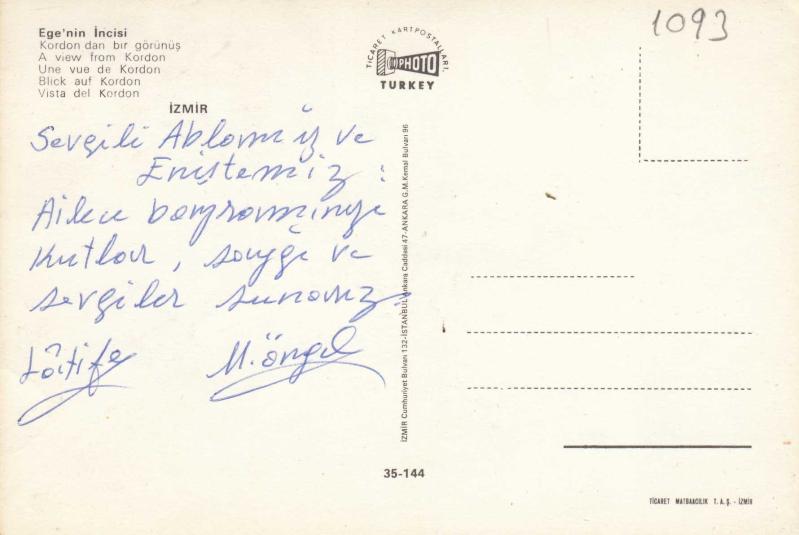 1093
Ege'nin İncisi
Kordon dan bir görünüş
A view from Kordon
Une vue de Kordon
Blick auf Kordon
Vista del Kordon
İZMİR
TİCARET KARTPOSTALLARI,
PHOTO
TURKEY
Sevgili Ablamız ve
Eniştemiz :
Ailece bayramınızı
Kutlar, saygı ve
sevgiler sunarız.
Lâtife M. Öngel
İZMİR Cumhuriyet Bulvarı 132-İSTANBUL Ankara Caddesi 47-ANKARA G.M.Kemal Bulvarı 96
35-144
TİCARET MATBAACILIK T. A. Ş. - İZMİR